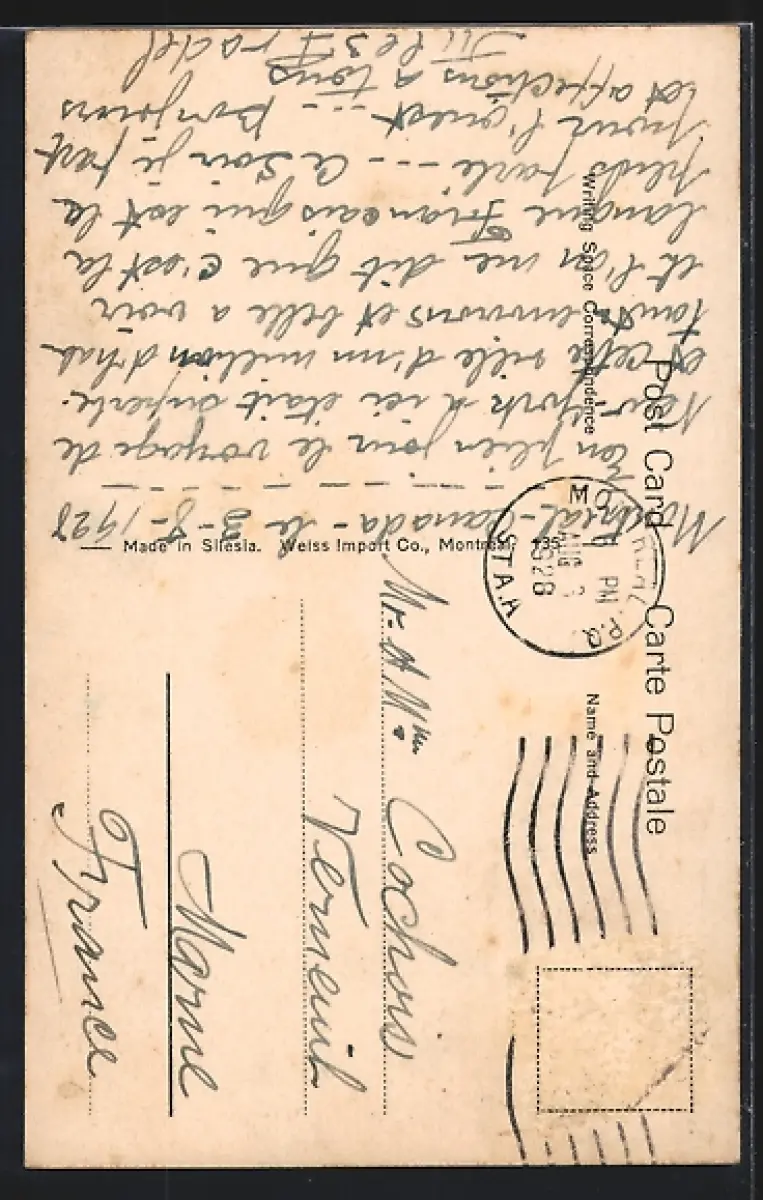 Post Card
Carte Postale
Writing Space Correspondence
Name and Address
Montreal-Canada-le 3-8-1928
en plein jour le voyage de
New-york a ici était superbe.
et cette ville d'un million d'hab
tants environs et belle a voir
et l'on me dit que c'est la
langue Francais qui est la
plus parlé --- ce soir je part
pour l'ouest --- bonjours
et affections a tous
Jules Fradel
Made in Silesia. Weiss Import Co., Montreal. 135
MONTREAL P.Q.
PM
AUG 3
1928
STA.H
Mr. & Mme Cochois
Verneuil
Marne
France